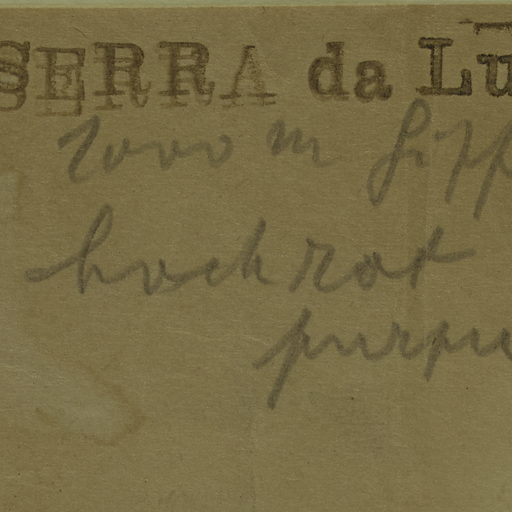 SERRA da Lu
1000 m Gipf
hochrot
purpu